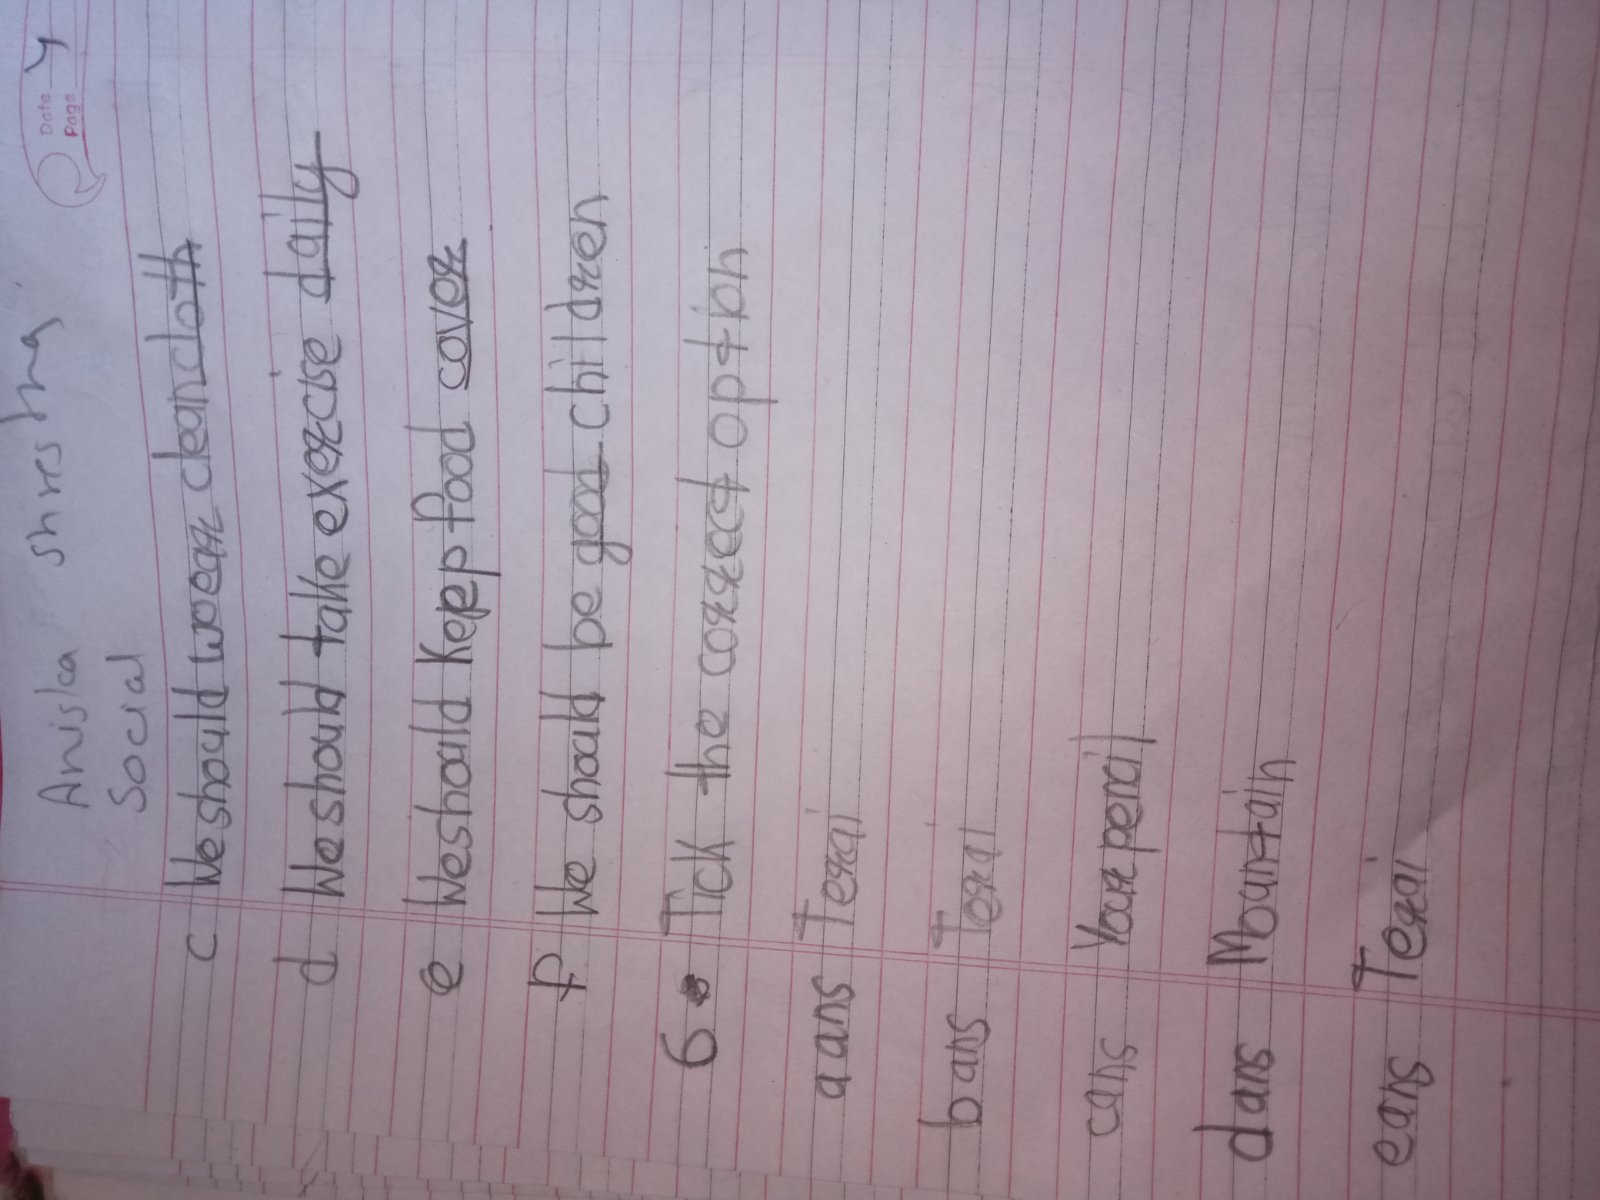 Date 4
Page
Aniska shrestha
Social
c We should wear clean cloth
d We should take exercise daily
e We should keep food cover
f We should be good children
6. Tick the correct option
a ans Terai
b ans Terai
c ans Your pencil
d ans Mountain
e ans Terai